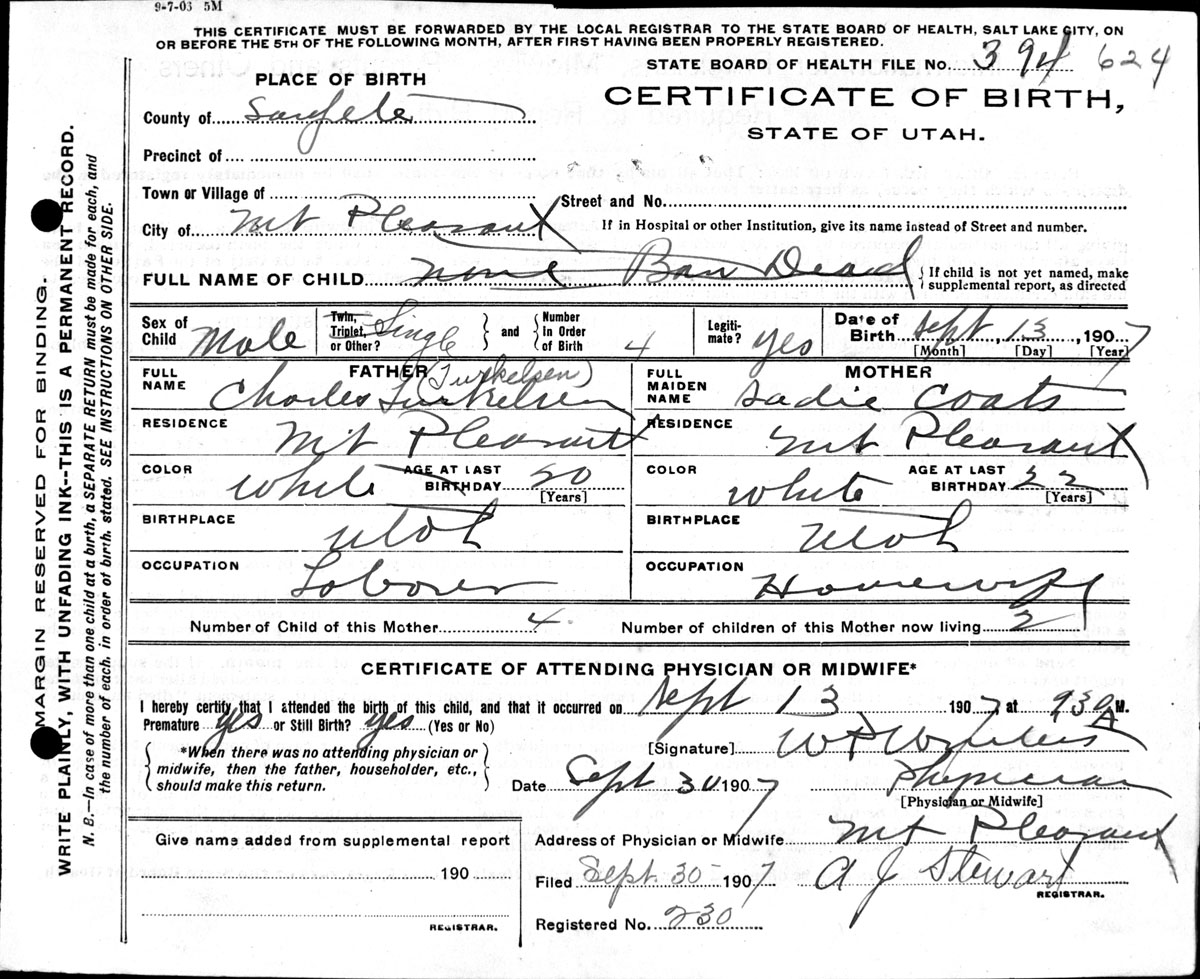 9-7-03 5M
THIS CERTIFICATE MUST BE FORWARDED BY THE LOCAL REGISTRAR TO THE STATE BOARD OF HEALTH, SALT LAKE CITY, ON
OR BEFORE THE 5TH OF THE FOLLOWING MONTH, AFTER FIRST HAVING BEEN PROPERLY REGISTERED.
STATE BOARD OF HEALTH FILE No. 394 624
PLACE OF BIRTH
CERTIFICATE OF BIRTH,
STATE OF UTAH.
County of Sanpete
Precinct of
Town or Village of
Street and No.
City of Mt Pleasant
If in Hospital or other Institution, give its name instead of Street and number.
FULL NAME OF CHILD none Born Dead
{ If child is not yet named, make
supplemental report, as directed
Sex of Child Male
Twin, Triplet, or Other? Single
and
Number In Order of Birth 4
Legitimate? yes
Date of Birth Sept 13, 1907
[Month] [Day] [Year]
FATHER
FULL NAME Charles Turkelsen (Turkelsen)
MOTHER
FULL MAIDEN NAME Sadie Coats
RESIDENCE Mt Pleasant
RESIDENCE Mt Pleasant
COLOR White AGE AT LAST BIRTHDAY 20 [Years]
COLOR White AGE AT LAST BIRTHDAY 22 [Years]
BIRTHPLACE Utah
BIRTHPLACE Utah
OCCUPATION Laborer
OCCUPATION Housewife
Number of Child of this Mother 4
Number of children of this Mother now living 2
CERTIFICATE OF ATTENDING PHYSICIAN OR MIDWIFE*
I hereby certify that I attended the birth of this child, and that it occurred on Sept 13 1907, at 930 A M.
Premature yes or Still Birth? yes (Yes or No)
*When there was no attending physician or
midwife, then the father, householder, etc.,
should make this return.
[Signature] W P Winters
Date Sept 30 1907
Physician
[Physician or Midwife]
Address of Physician or Midwife Mt Pleasant
Give name added from supplemental report
190
REGISTRAR.
Filed Sept. 30 1907 A J Stewart
REGISTRAR.
Registered No. 230
MARGIN RESERVED FOR BINDING.
WRITE PLAINLY, WITH UNFADING INK--THIS IS A PERMANENT RECORD.
N. B.—In case of more than one child at a birth, a SEPARATE RETURN must be made for each, and
the number of each, in order of birth, stated. SEE INSTRUCTIONS ON OTHER SIDE.